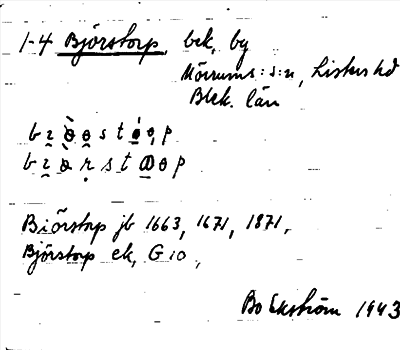 1-4 Björstorp, bek, by
Mörrums s:n, Listers hd
Blek. län
Biörstorp jb 1663, 1671, 1871,
Björstorp ek, G 10,
Bo Ekström 1943